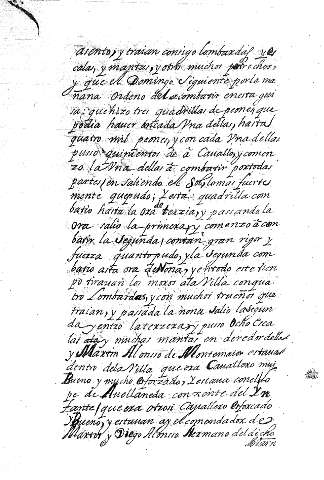 asiento, y traian consigo lombardas y es
calas, y mantas, y otros muchos petrechos,
y que el Domingo siguiente por la ma
ñana ordeno del combatir en esta gui
sa: que hizo tres quadrillas de peones, que
podia haver en cada una dellas, hasta
quatro mil peones, y con cada una dellas
puso quinientos de à Cavallo, y comen
zo la una dellas à combatir por todas
partes, en saliendo el Sol, lo mas fuerte
mente que pudo, y esta quadrilla con
batio hasta la ora de terzia, y passando la
ora salio la primera, y comenzo à con
batir la segunda, con tan gran rigor y
fuerza quanto pudo, y la segunda con
batio asta ora de Nona, y en todo este tien
po tiravan los moros a la Villa con qua
tro Lombardas, y con muchos truenos que
traian, y passada la nona salio la segun
da y entro la terzera, y puso ocho esca
las, y muchas mantas en derredor dellas
y Martin Alonso de Montemaior estava
dentro de la Villa que era Cavallero mui
Bueno, y mucho esforzado, y estava con el Lo
pe de Avellaneda con xente del In
fante, que era otrosi Cavallero esforcado
y Bueno, y estavan ay el comendador de
Martos y Diego Alonso hermano del dicho
Martin